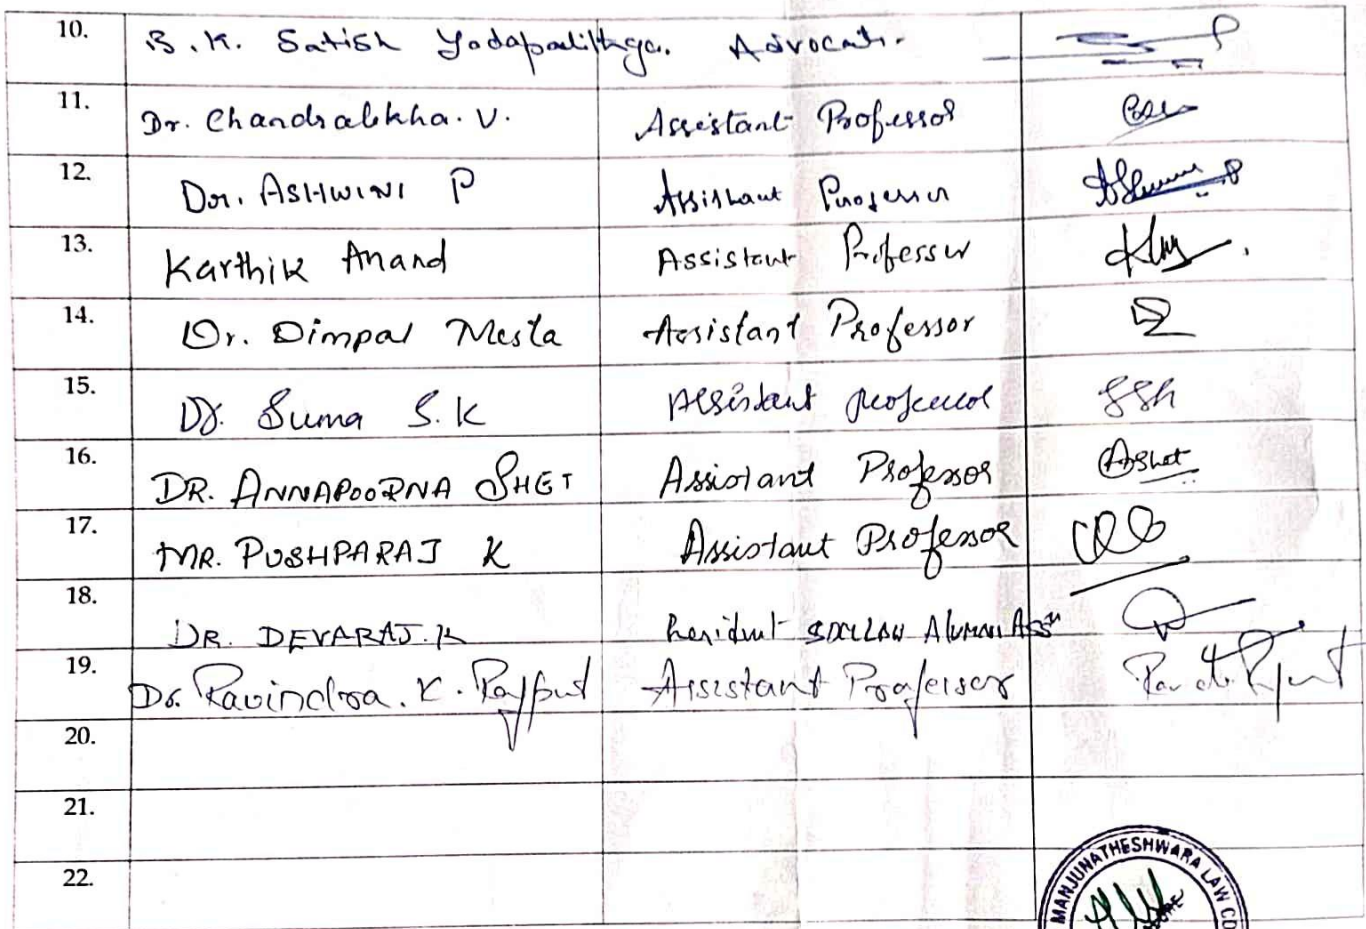 10. B. K. Satish Advocate.
11. Dr. Chandralekha. V. Assistant Professor
12. Dr. ASHWINI P Assistant Professor
13. Karthik Anand Assistant Professor
14. Dr. Dimpal Mesta Assistant Professor
15. Dr. Suma S. K Assistant professor SSK
16. DR. ANNAPOORNA SHET Assistant Professor AShet
17. MR. PUSHPARAJ K Assistant Professor
18. DR. DEVARAJ. K LAW Alumni Assn
19. Dr. Ravindra. K. Rajput Assistant Professor
20.
21.
22.
MANJUNATHESHWARA LAW CO